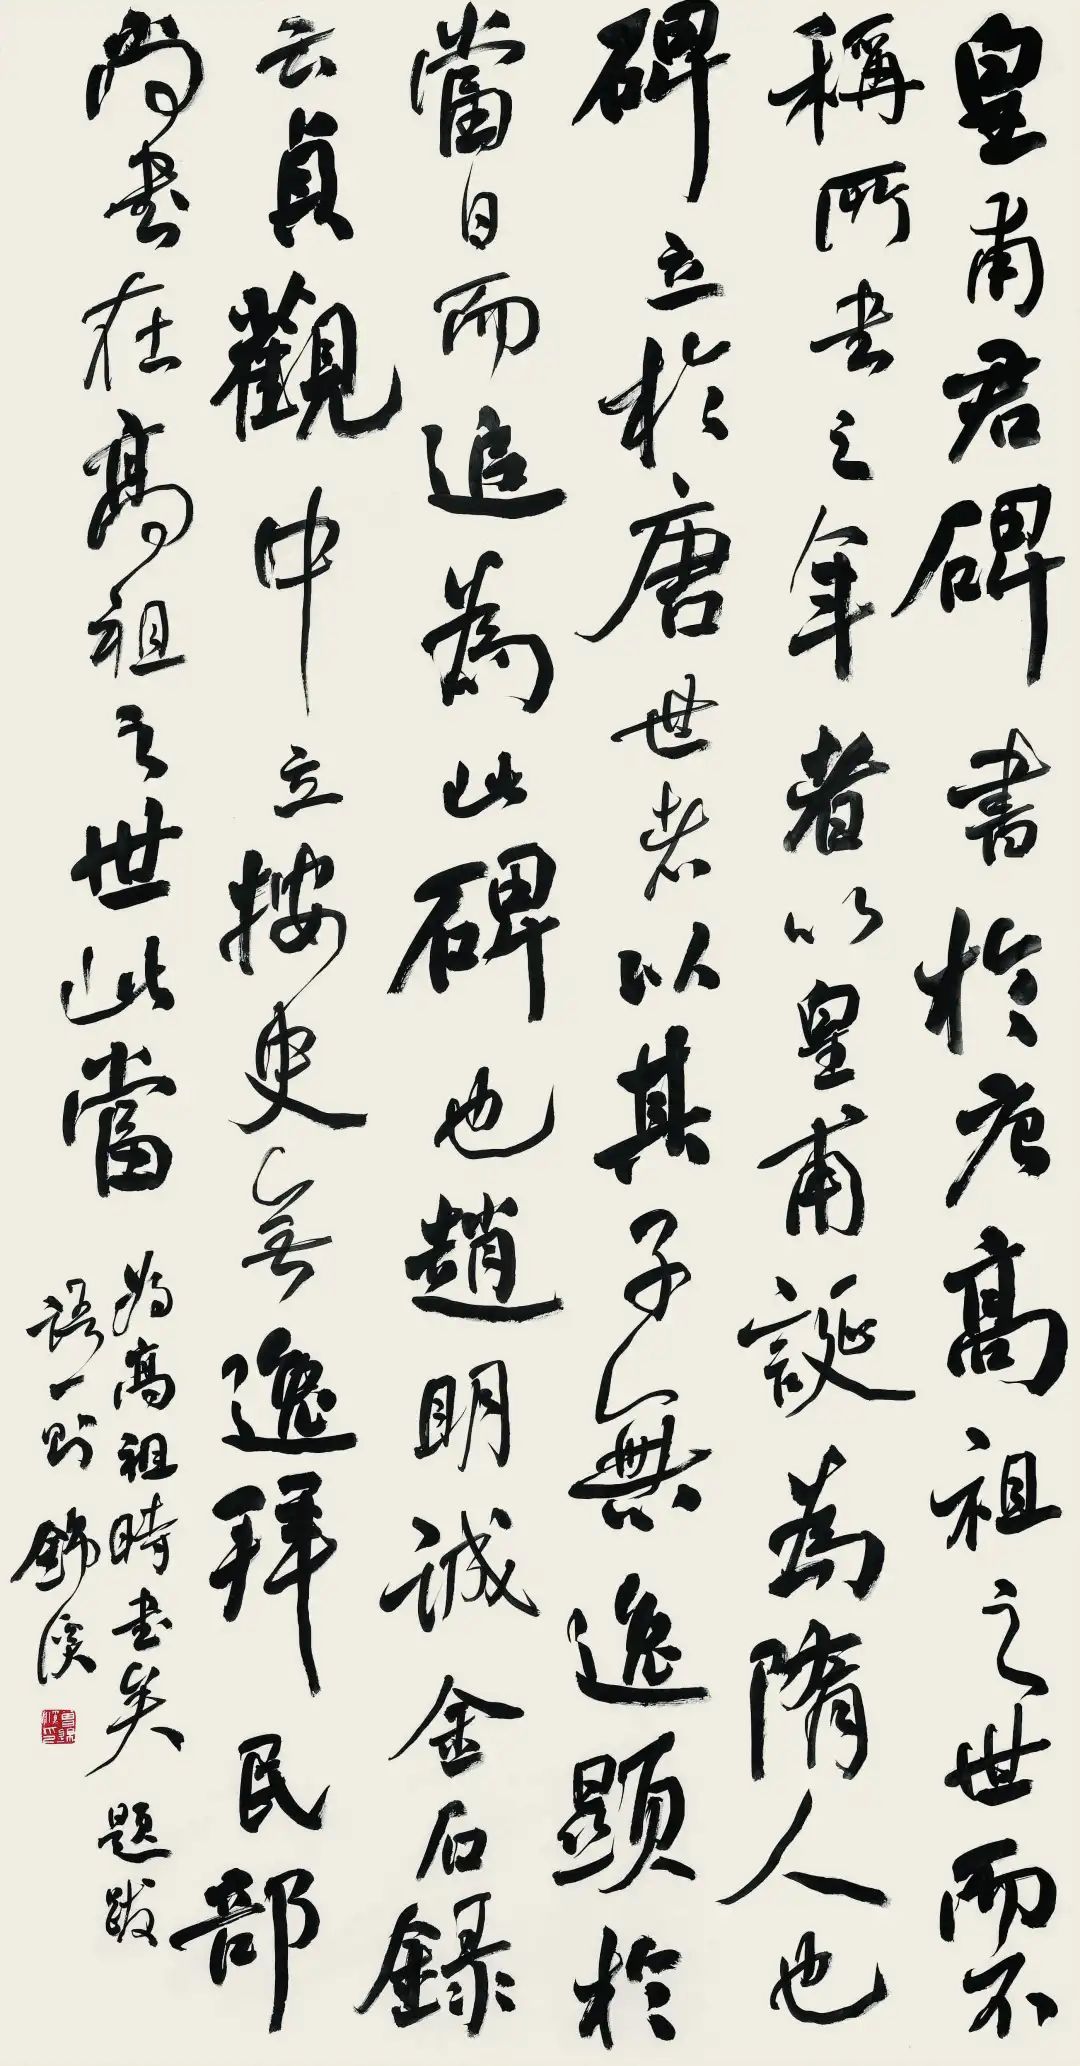 皇甫君碑書於唐高祖之世而不
稱所書之年者以皇甫誕為隋人也
碑立於唐世者以其子無逸顯於
當日而追為此碑也趙明誠金石錄
云貞觀中立按史無逸拜民部
尚書在高祖之世此當
為高祖時書矣題跋
語一則錦溪